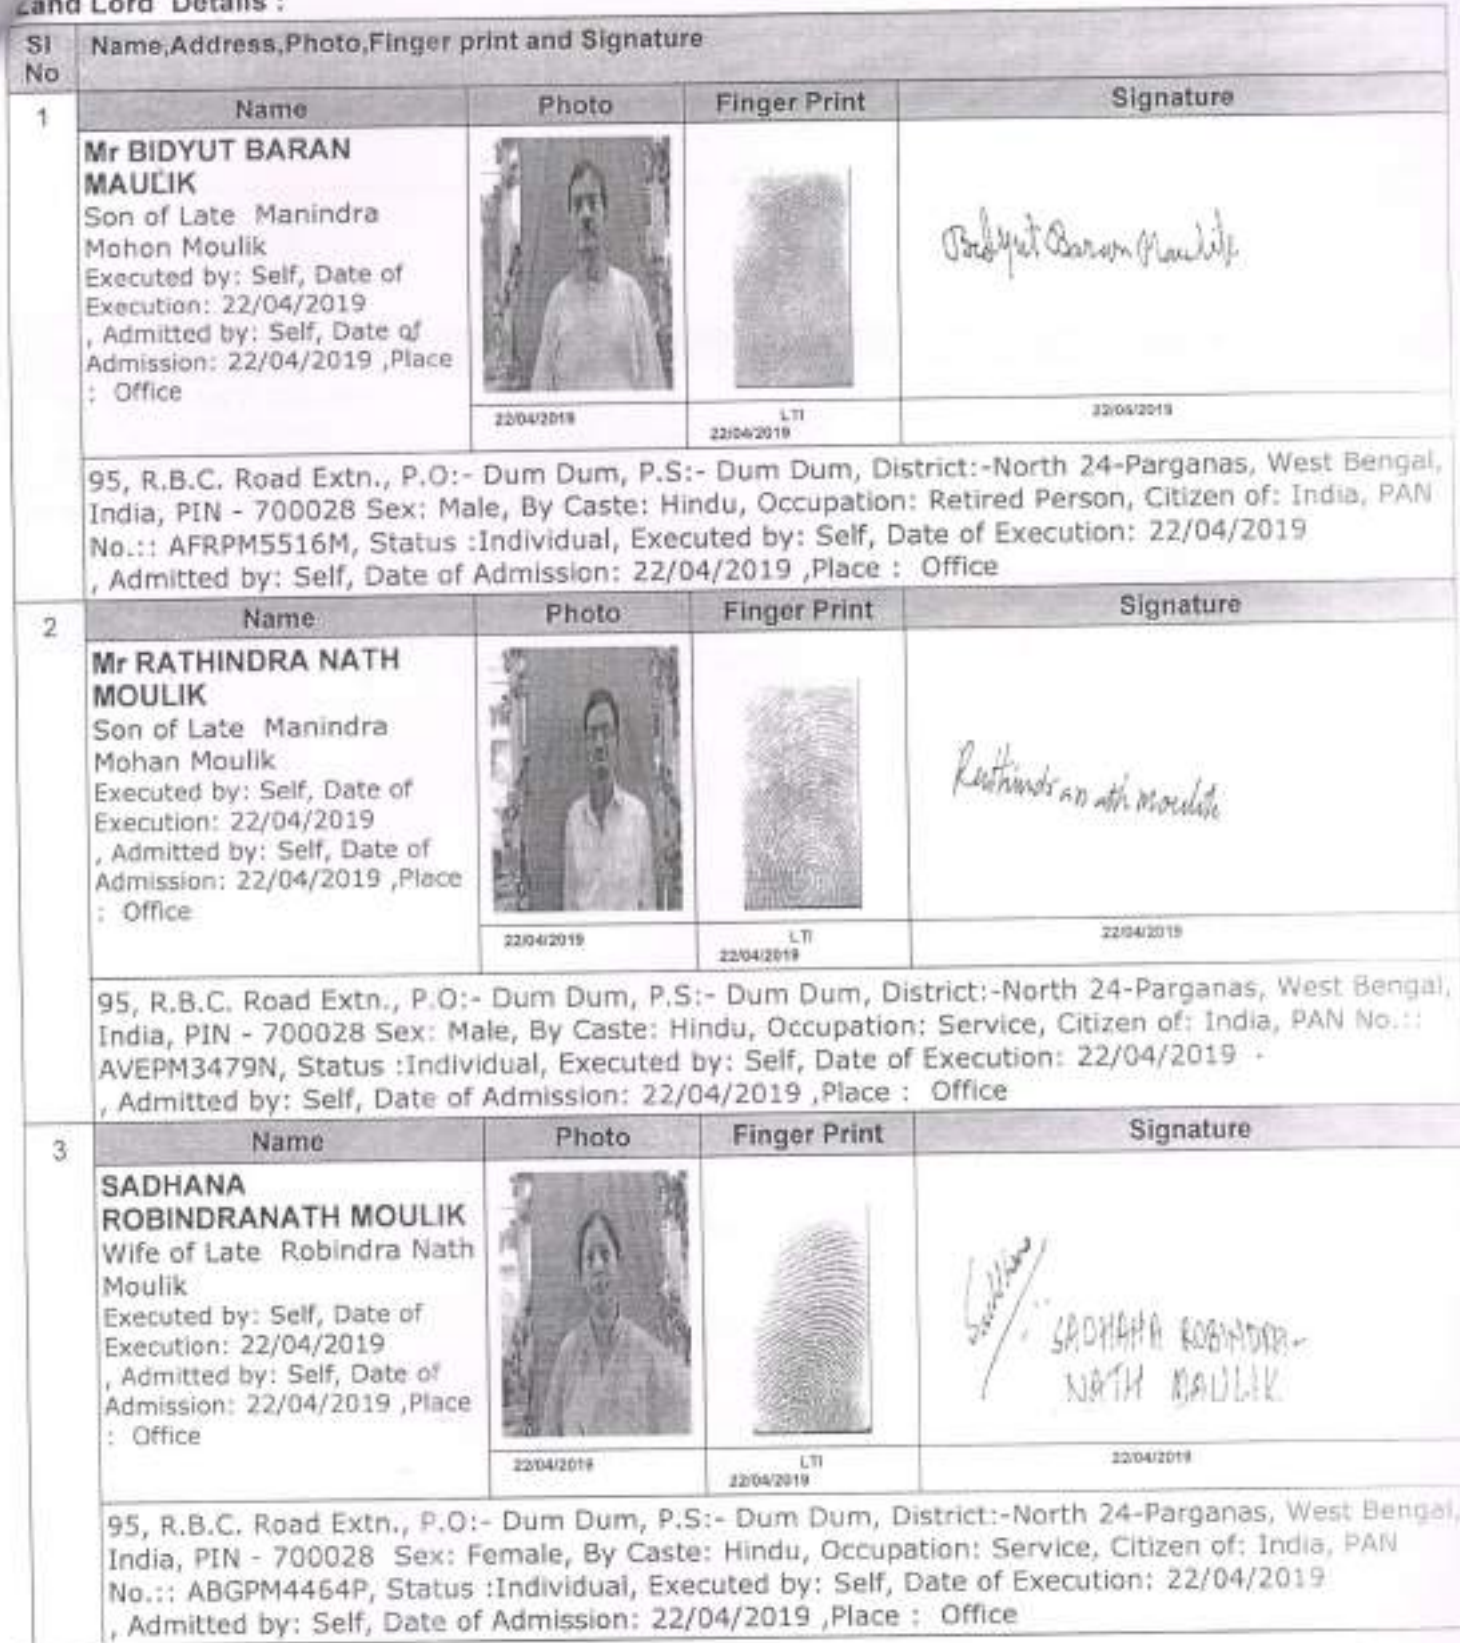 Land Lord Details :
Sl No
Name,Address,Photo,Finger print and Signature
1
Name Photo Finger Print Signature
Mr BIDYUT BARAN
MAULIK
Son of Late Manindra
Mohon Moulik
Executed by: Self, Date of
Execution: 22/04/2019
, Admitted by: Self, Date of
Admission: 22/04/2019 ,Place
: Office
Bidyut Baran Maulik
22/04/2019
LTI
22/04/2019
22/04/2019
95, R.B.C. Road Extn., P.O:- Dum Dum, P.S:- Dum Dum, District:-North 24-Parganas, West Bengal,
India, PIN - 700028 Sex: Male, By Caste: Hindu, Occupation: Retired Person, Citizen of: India, PAN
No.:: AFRPM5516M, Status :Individual, Executed by: Self, Date of Execution: 22/04/2019
, Admitted by: Self, Date of Admission: 22/04/2019 ,Place : Office
2
Name Photo Finger Print Signature
Mr RATHINDRA NATH
MOULIK
Son of Late Manindra
Mohan Moulik
Executed by: Self, Date of
Execution: 22/04/2019
, Admitted by: Self, Date of
Admission: 22/04/2019 ,Place
: Office
Rathindra nath moulik
22/04/2019
LTI
22/04/2019
22/04/2019
95, R.B.C. Road Extn., P.O:- Dum Dum, P.S:- Dum Dum, District:-North 24-Parganas, West Bengal,
India, PIN - 700028 Sex: Male, By Caste: Hindu, Occupation: Service, Citizen of: India, PAN No.::
AVEPM3479N, Status :Individual, Executed by: Self, Date of Execution: 22/04/2019
, Admitted by: Self, Date of Admission: 22/04/2019 ,Place : Office
3
Name Photo Finger Print Signature
SADHANA
ROBINDRANATH MOULIK
Wife of Late Robindra Nath
Moulik
Executed by: Self, Date of
Execution: 22/04/2019
, Admitted by: Self, Date of
Admission: 22/04/2019 ,Place
: Office
SADHANA ROBINDRA-
NATH MAULIK
22/04/2019
LTI
22/04/2019
22/04/2019
95, R.B.C. Road Extn., P.O:- Dum Dum, P.S:- Dum Dum, District:-North 24-Parganas, West Bengal,
India, PIN - 700028 Sex: Female, By Caste: Hindu, Occupation: Service, Citizen of: India, PAN
No.:: ABGPM4464P, Status :Individual, Executed by: Self, Date of Execution: 22/04/2019
, Admitted by: Self, Date of Admission: 22/04/2019 ,Place : Office